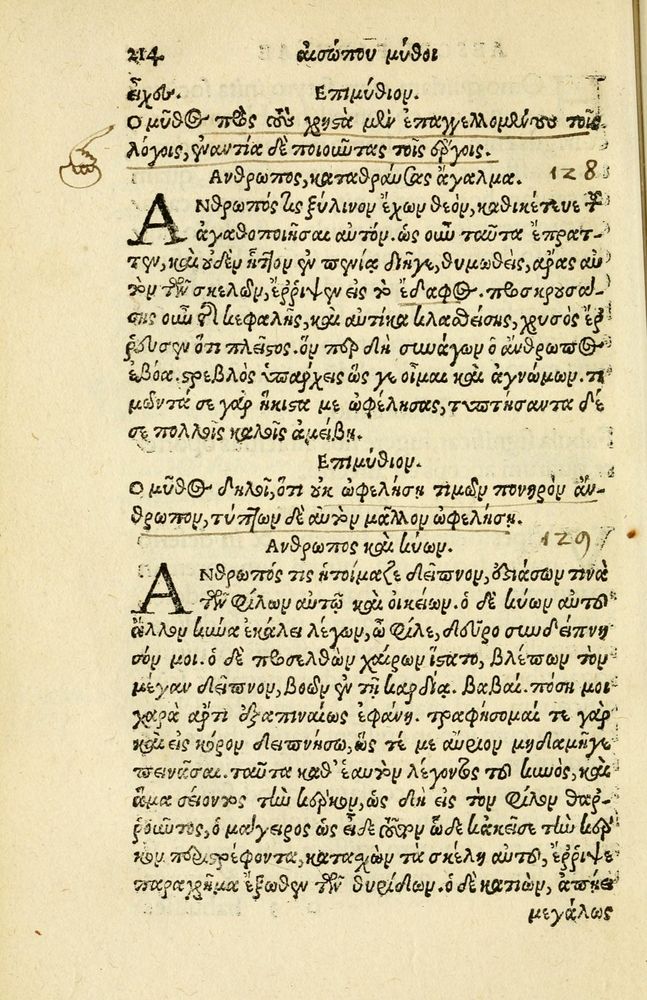 214 αἰσώπου μύθοι
εἶχου. Επιμύθιον.
Ο μῦθος πρὸς τοὺς χρηστὰ μὲν ἐπαγγελλομένους τοῖς
λόγοις, ἐναντία δὲ ποιοῦντας τοῖς ἔργοις.
Ανθρωπος, καταθραύσας ἄγαλμα. 128
ΑΝθρωπός τις ξύλινον ἔχων θεὸν, καθικέτευε τ
ἀγαθοποιῆσαι αὐτόν. ὡς οὖν ταῦτα ἔπρατ-
τεν, καὶ οὐδὲν ἧττον ἐν πενίᾳ διῆγε, θυμωθεὶς, ἄρας αὐ
τὸν τῶν σκελῶν, ἔρριψεν εἰς τὸ ἔδαφος. προσκρουσά-
σης οὖν τῆς κεφαλῆς, καὶ αὐτίκα κλασθείσης, χρυσὸς ἔρ
ρευσεν ὅτι πλεῖστος. ὃν περ δὴ συνάγων ὁ ἄνθρωπος
ἐβόα. στρεβλὸς ὑπάρχεις ὥς γε οἶμαι καὶ ἀγνώμων. τι
μῶντά σε γὰρ ἥκιστα με ὠφέλησας, τυπτήσαντα δέ
σε πολλοῖς καλοῖς ἀμείβῃ.
Επιμύθιον.
Ο μῦθος δηλοῖ, ὅτι οὐκ ὠφελήσῃ τιμῶν πονηρὸν ἄν-
θρωπον, τύπτων δὲ αὐτὸν μᾶλλον ὠφελήσῃ.
Ανθρωπος καὶ κύων. 129
ΑΝθρωπός τις ἡτοίμαζε δεῖπνον, ἑστιάσων τινὰ
τῶν φίλων αὐτῷ καὶ οἰκείων. ὁ δὲ κύων αὐτοῦ
ἄλλον κύνα ἐκάλει λέγων, ὦ φίλε, δεῦρο συνδείπνη
σόν μοι. ὁ δὲ προσελθὼν χαίρων ἵστατο, βλέπων τὸν
μέγαν δεῖπνον, βοῶν ἐν τῇ καρδίᾳ. βαβαί. πόση μοι
χαρὰ ἄρτι ἐξαπιναίως ἐφάνη. τραφήσομαί τε γὰρ
καὶ εἰς κόρον δειπνήσω, ὥς τέ με αὔριον μηδαμῆγε
πεινᾶσαι. ταῦτα καθ' ἑαυτὸν λέγοντος τοῦ κυνὸς, καὶ
ἅμα σείοντος τὴν κέρκον, ὡς δὴ εἰς τὸν φίλον θαρ-
ροῦντος, ὁ μάγειρος ὡς εἶδε τοῦτον ὧδε κἀκεῖσε τὴν κέρ
κον περιστρέφοντα, κατασχὼν τὰ σκέλη αὐτοῦ, ἔρριψε
παραχρῆμα ἔξωθεν τῶν θυρίδων. ὁ δὲ κατιὼν, ἀπῄει
μεγάλως